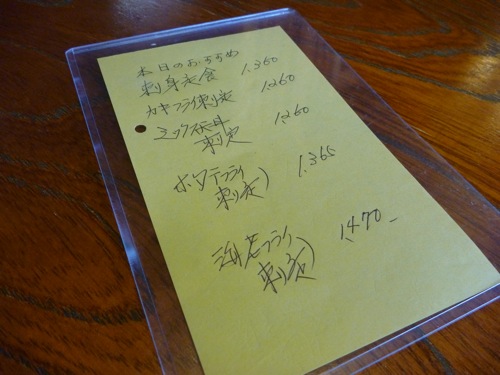 本日のおすすめ
刺身定食 1.360
カキフライ刺定 1.260
ミックス天丼 1.260
刺定
ホタテフライ 1.365
刺定)
海老フライ 1.470
刺定)